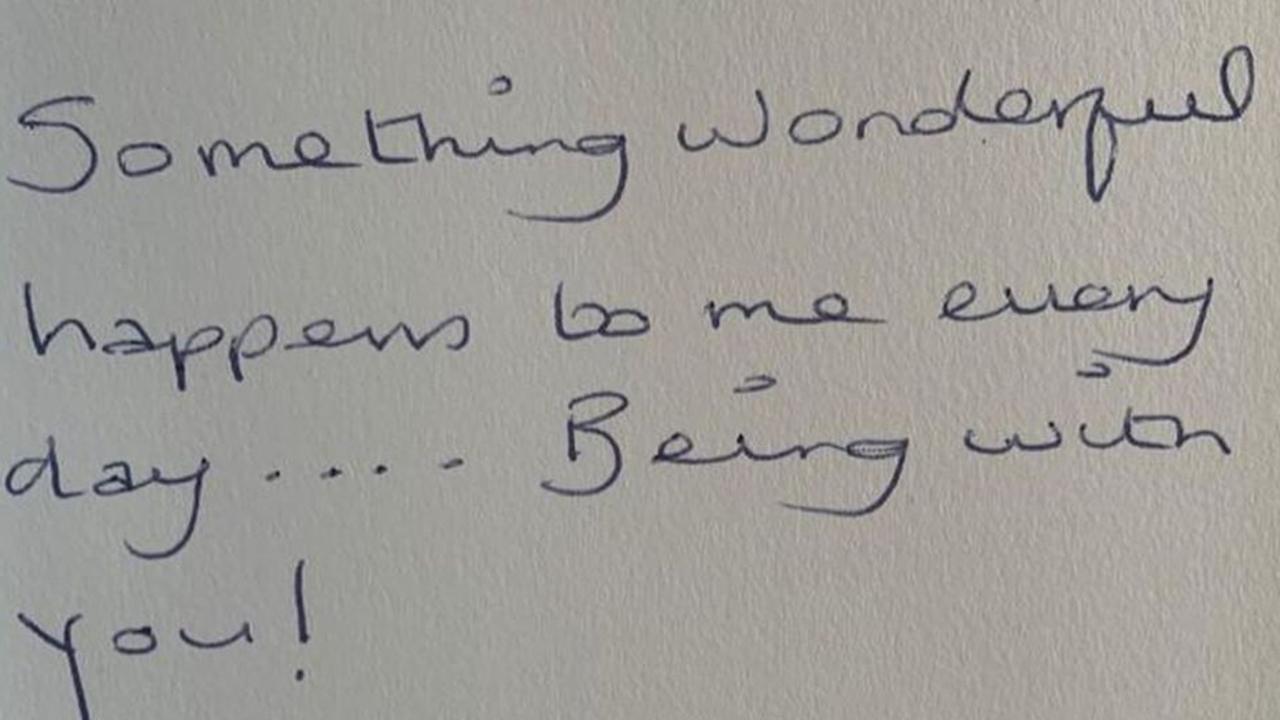 Something wonderful
happens to me every
day .... Being with
you!